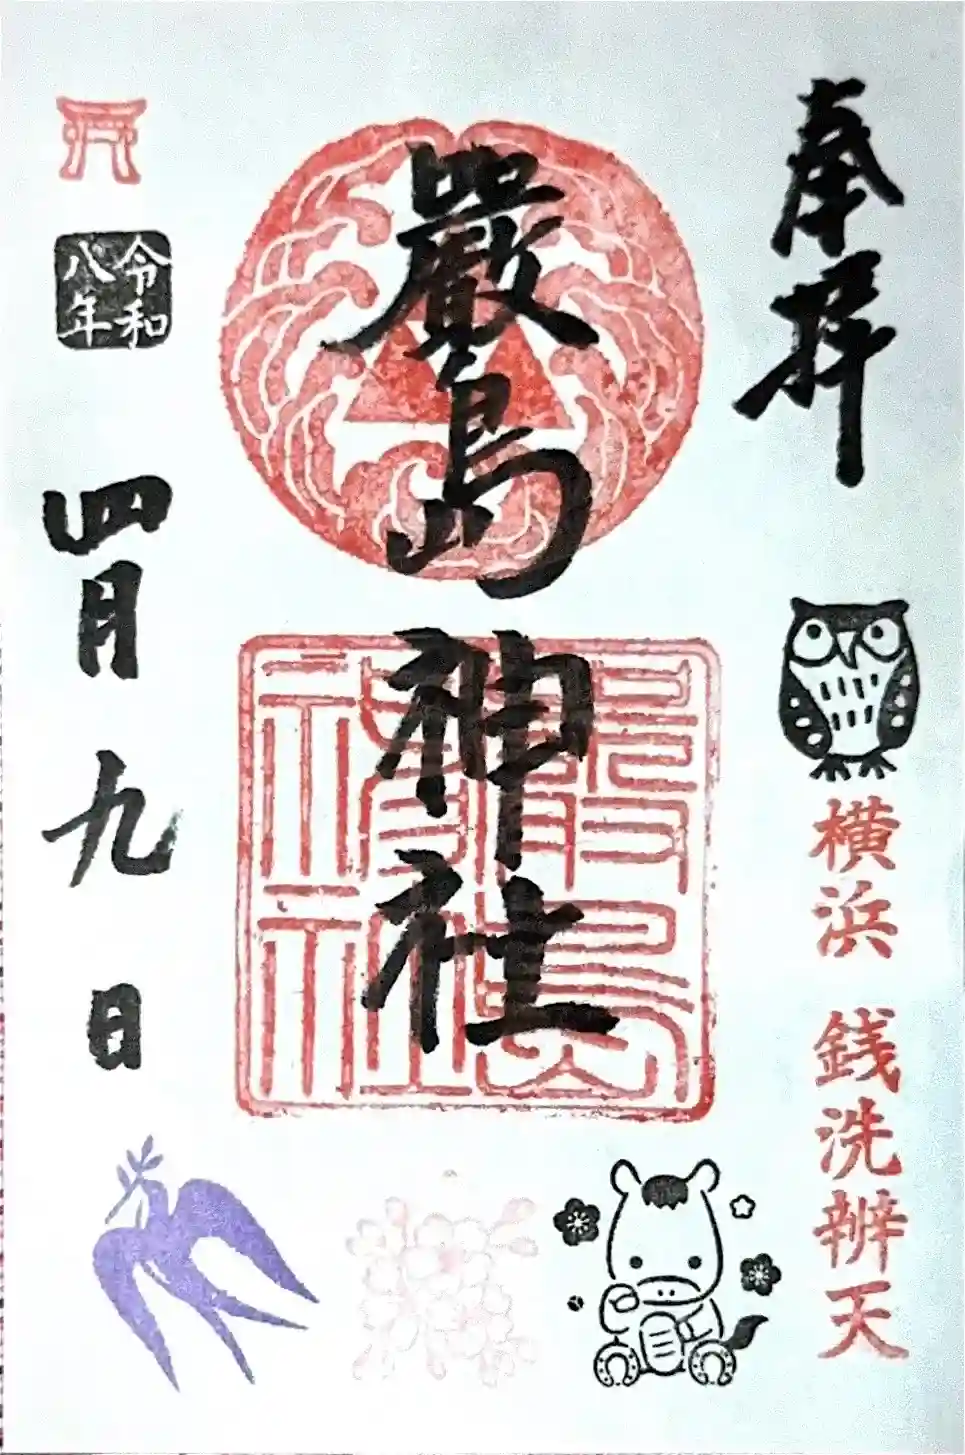 奉拝
横浜 銭洗辨天
嚴島神社
嚴島
神社
令和
八年
四月九日